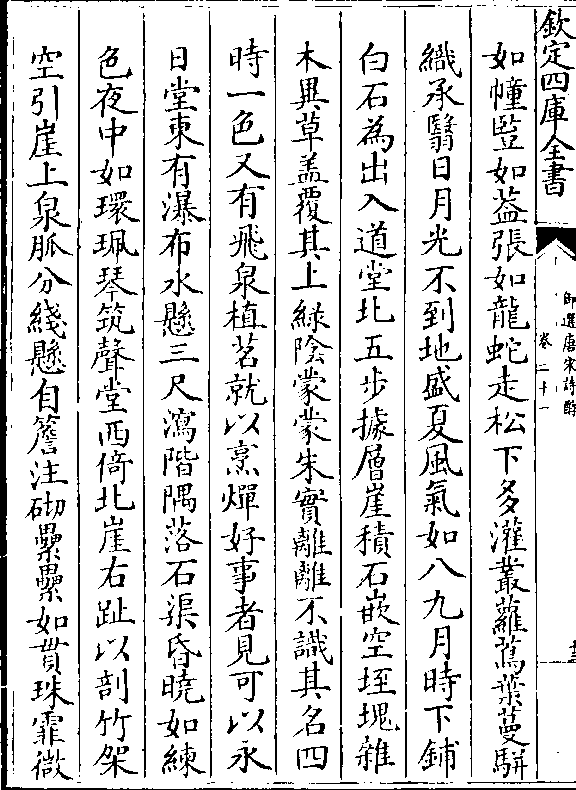 欽定四庫全書
御選唐宋詩醇
卷二十一
如幢豎如葢張如龍蛇走松下多灌叢蘿蔦葉蔓駢
織承翳日月光不到地盛夏風氣如八九月時下鋪
白石為出入道堂北五步據層崖積石嵌空垤堄雜
木異草葢覆其上緑陰蒙蒙朱實離離不識其名四
時一色又有飛泉植茗就以烹燀好事者見可以永
日堂東有瀑布水懸三尺瀉階隅落石渠昏曉如練
色夜中如環珮琴筑聲堂西倚北崖右趾以剖竹架
空引崖上泉脈分綫懸自簷注砌纍纍如貫珠霏微